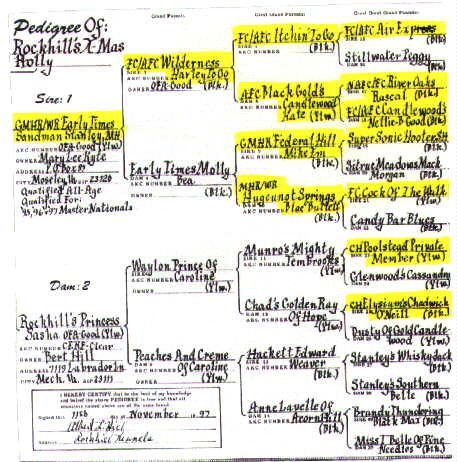 Grand Parents: Great Grand Parents: Great Great Grand Parents:
Pedigree Of:
Rockhill's X-Mas
Holly
Sire: 1
GMHR/WR Early Times
Sandman Stanley, MH
AKC NUMBER OFA-Good (Ylw)
OWNER Mary Lee Hyle
ADDRESS P.O. Box 87
CITY Moseley, Va ZIP 23120
Qualified All-Age
Qualified For:
'95, '96 & '97 Master Nationals
Dam: 2
Rockhill's Princess
Sasha OFA-Good (Ylw)
AKC NUMBER CERF-Clear
OWNER Bert Hill
ADDRESS 7119 Labrador Ln
CITY Mech. Va. ZIP 23111
FC/AFC Wilderness
SIRE 3 Harley To Go
AKC NUMBER OFA-Good (Blk.)
OWNER
Early Times Molly
DAM 4 Bea
AKC NUMBER (Blk.)
OWNER
Waylon Prince Of
SIRE 5 Caroline
AKC NUMBER (Ylw)
OWNER
Peaches And Creme
DAM 6 Of Caroline
AKC NUMBER (Ylw.)
OWNER
FC/AFC Itchin' To Go
SIRE 7 (Blk.)
AKC NUMBER
AFC Black Gold's
DAM 8 Candlewood
AKC NUMBER Kate (Ylw.)
GMHR Federal Hill
SIRE 9 Mike Em
AKC NUMBER (Blk.)
MHR/WR
Huguenot Springs
DAM 10 Blac Buttels
AKC NUMBER (Blk.)
Munro's Mighty
SIRE 11 Tembrooke
AKC NUMBER (Ylw.)
Chad's Golden Ray
DAM 12 Of Hope
AKC NUMBER (Ylw.)
Hackett Edward
SIRE 13 Weaver
AKC NUMBER (Blk.)
Anne Lavelle Of
DAM 14 Acorn Hill
AKC NUMBER (Blk.)
FC/AFC Air Express
SIRE 15 (Blk)
Stillwater Piggy
DAM 16 (Blk.)
NAFC/FC River Oaks
Rascal (Blk.)
FC/AFC Candlewood's
Nellie-B-Good (Blk)
Super Sonic Hooter, SH
(Blk.)
Sitrue Meadows Mack
Morgan (Blk.)
FC Cock Of The Walk
(Blk.)
Candy Bar Blues
(Blk.)
CH Poolstead Private
Member (Ylw)
Glenwood's Cassandra
(Ylw.)
CH Elysium's Chadwick
O'Neill (Blk.)
Dusty Of Gold Candle
wood (Ylw.)
Stanley's Whisky Jack
(Blk.)
Stanley's Southern
Belle (Blk.)
Brandy Thundering
Black Max (Blk.)
Miss I Belle Of Pine
Needles (Blk.)
I HEREBY CERTIFY that to the best of my knowledge
and belief the above PEDIGREE is true and that all
ancestors named above are of the same breed.
Signed this 11th day of November 1997
Albert L. Hill
Rockhill Kennels